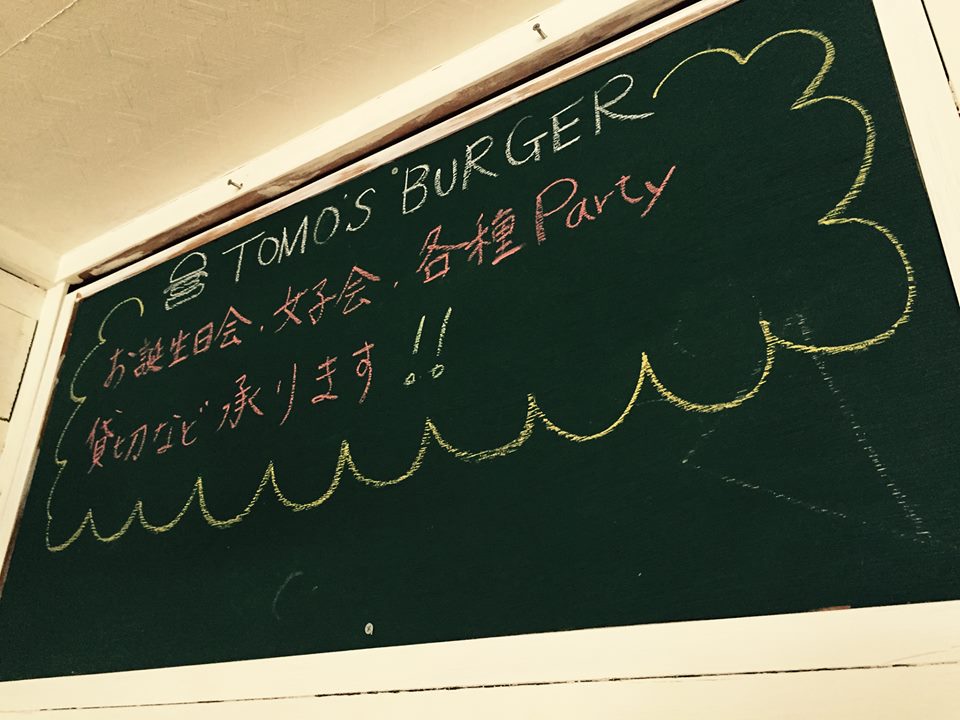 TOMO'S BURGER
お誕生日会・女子会・各種Party
貸切など承ります!!